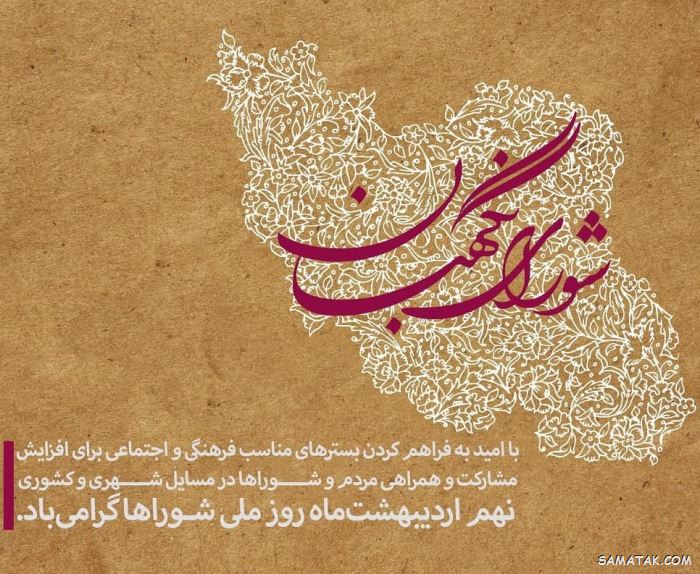 شورای نگهبان
با امید به فراهم کردن بسترهای مناسب فرهنگی و اجتماعی برای افزایش
مشارکت و همراهی مردم و شوراها در مسایل شهری و کشوری
نهم اردیبهشت‌ماه روز ملی شوراها گرامی‌باد.
SAMATAK.COM